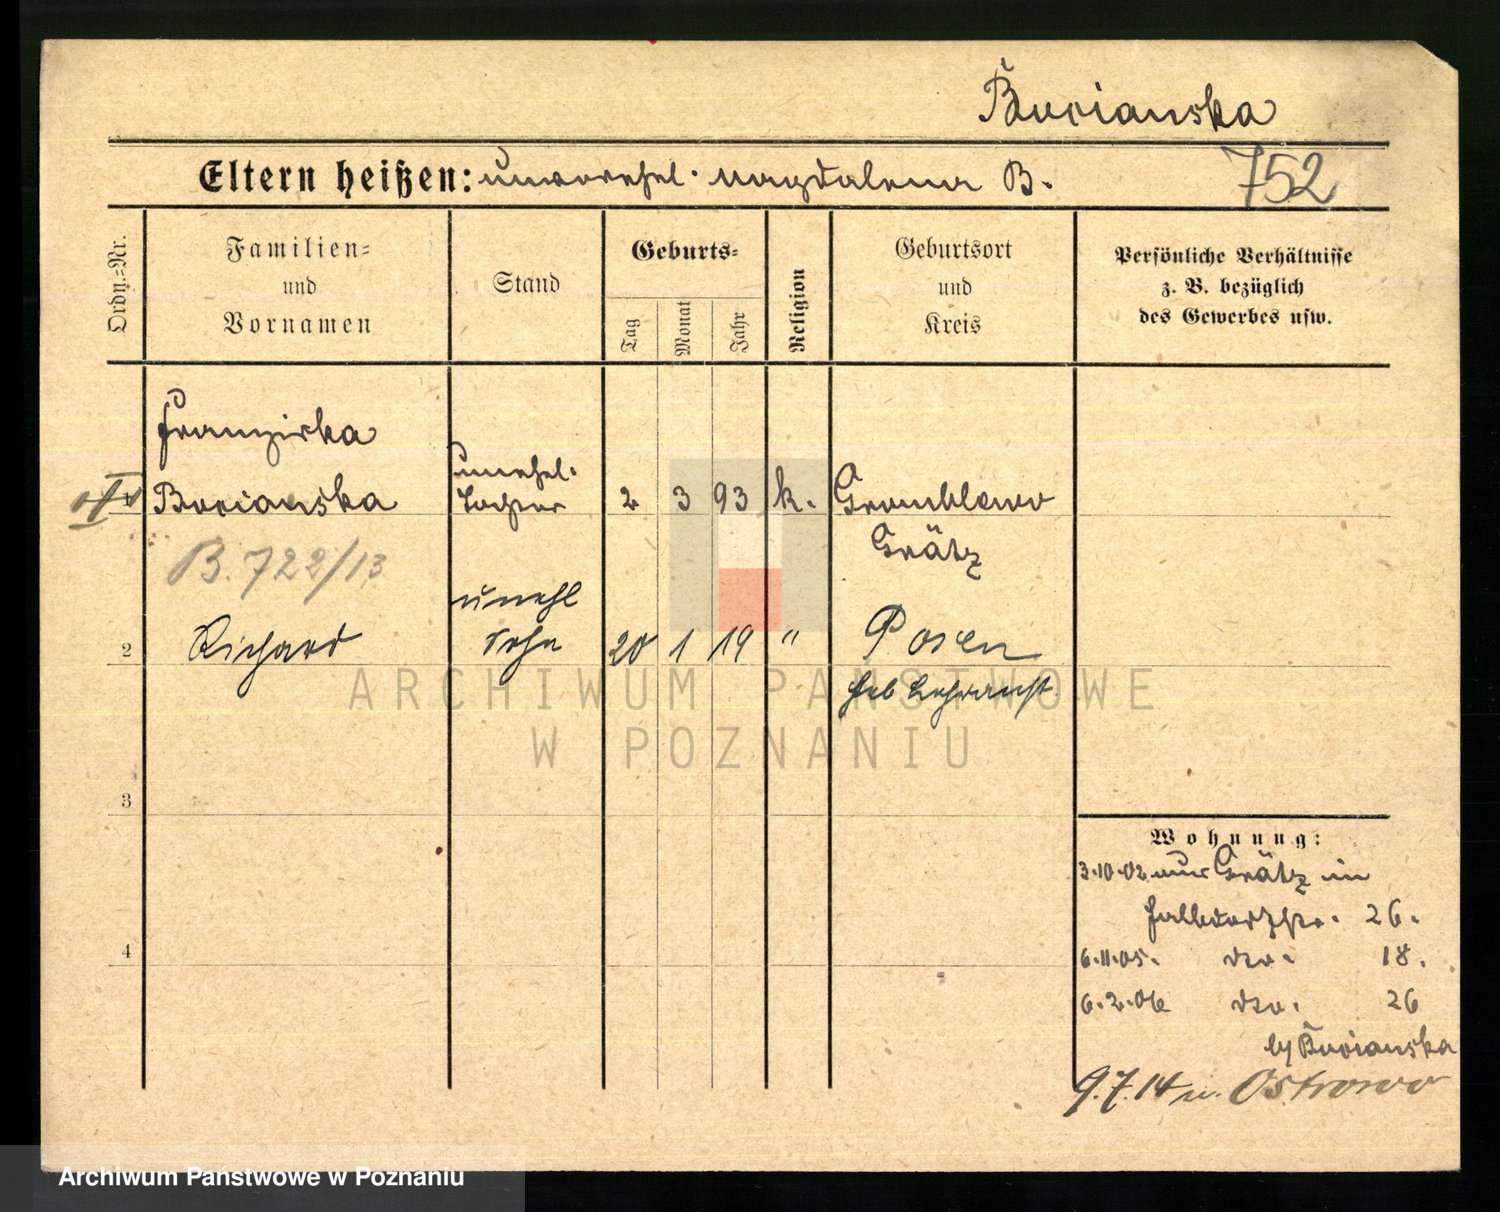 Bocianska
Eltern heißen: unverehel. Magdalena B.
752
Ordn.-Nr.
Familien-
und
Vornamen
Stand
Geburts-
Tag
Monat
Jahr
Religion
Geburtsort
und
Kreis
Persönliche Verhältnisse
z. B. bezüglich
des Gewerbes usw.
Franziska
unehel.
Bocianska Tochter 2 3 93 k. Gromblewo
Grätz
B. 722/13
unehl
2 Richard Sohn 20 1 19 " Posen
Heb Lehranst.
ARCHIWUM PAŃSTWOWE
W POZNANIU
3
4
Wohnung:
3.10.02 aus Grätz in
Halbdorfstr. 26.
6.11.05. dto. 18.
6.2.06 dto. 26
by Bocianska
9.7.14 n. Ostrowo
Archiwum Państwowe w Poznaniu